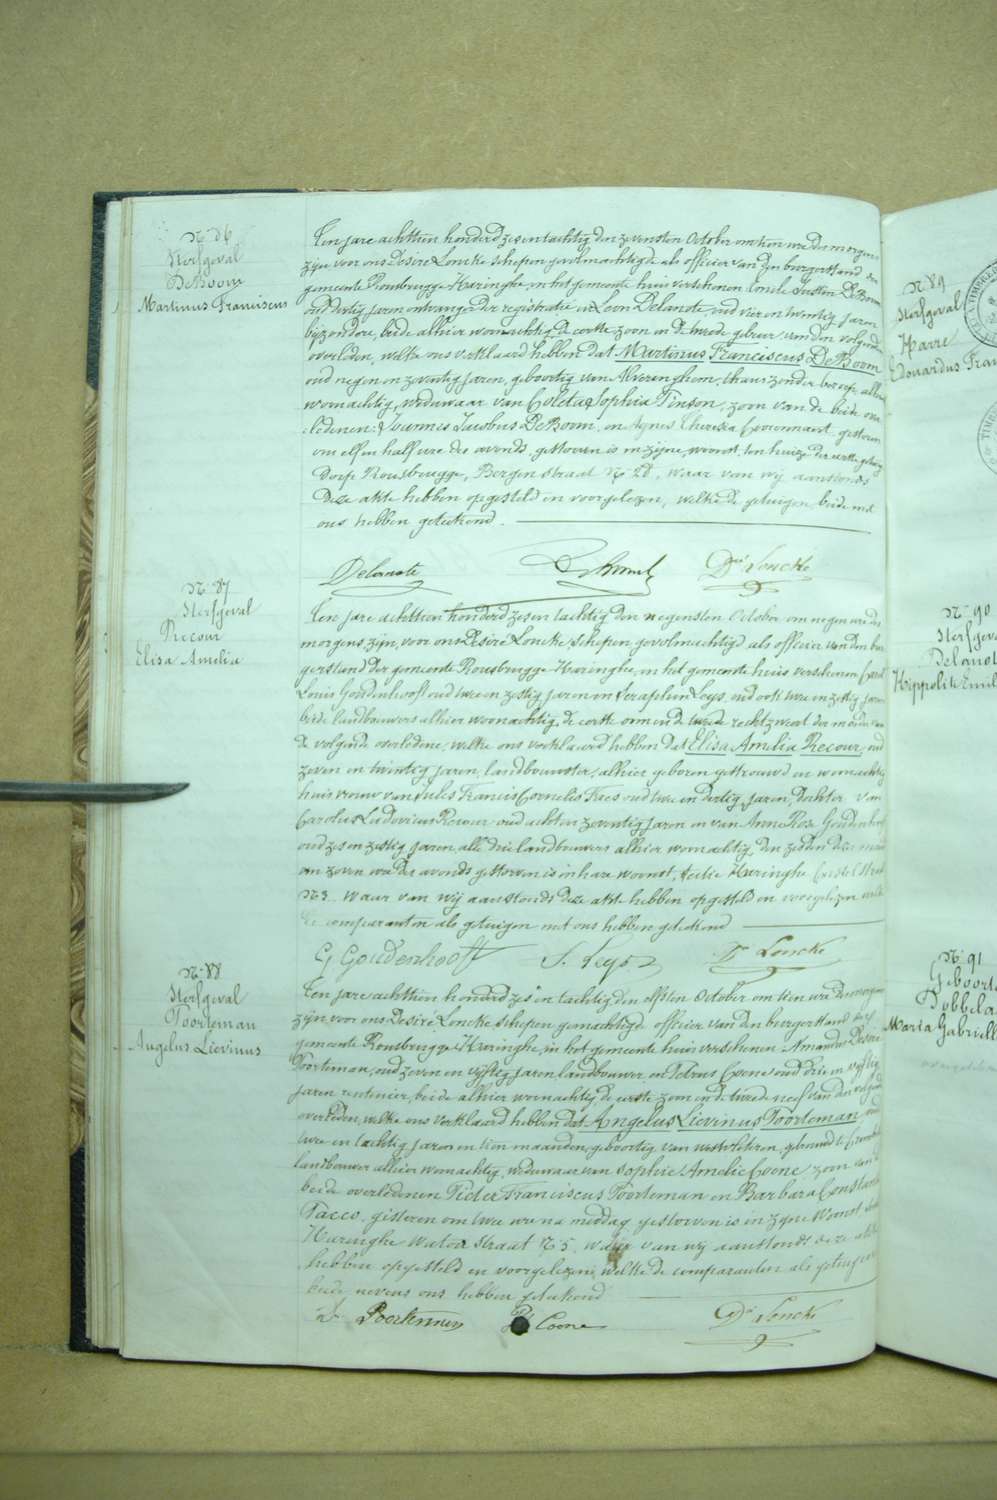 N° 86
Sterfgeval
DeBoom
Martinus Franciscus
Ten jare achttien honderd zes en tachtig den zevensten October om tien ure des morgens
zijn voor ons Desiré Loncke schepen gevolmachtigde als officier van den burgerstand der
gemeente Rousbrugge-Haringhe, in het gemeente huis verschenen DeBoom
oud dertig jaren ontvanger der registratie en Leon Delanote, oud vier en twintig jaren
bijzondere, beide alhier woonachtig de eerste zoon en de tweede gebuur van den volgende
overleden, welke ons verklaard hebben dat Martinus Franciscus DeBoom
oud negen en zeventig jaren, geboortig van Alveringhem, thans zonder beroep, alhier
woonachtig, weduwaar van Coleta Sophia Pinson, zoon van de beide over
ledenen: Joannes Jacobus DeBoom, en Agnes Theresia gisteren
om elf en half ure des avonds gestorven is in zijne woonst, ten huize der eerste getuige
Dorp Rousbrugge, Bergen straat N° 28, waar van wij aanstonds
deze akte hebben opgesteld en voorgelezen, welke de getuigen beide met
ons hebben geteekend.
Delanote
Dré Loncke
N° 87
Sterfgeval
Recour
Elisa Amelia
Ten jare achttien honderd zes en tachtig den negensten October om negen ure des
morgens zijn, voor ons Desiré Loncke, schepen gevolmachtigd als officier van den bur
gerstand der gemeente Rousbrugge-Haringhe, in het gemeente huis verschenen Carel
Louis Goudenhooft oud twee en zestig jaren en Seraphin Leys, oud ook twee en zestig jaren
beide landbouwers alhier woonachtig, de eerste oom en de tweede rechtzweer der moeder van
de volgende overledene, welke ons verklaard hebben dat Elisa Amelia Recour, oud
zeven en twintig jaren, landbouwster, alhier geboren getrouwd en woonachtig
huisvrouw van Jules Francis Cornelis Faes oud twee en dertig jaren, dochter van
Carolus Ludovicus Recour oud acht en zeventig jaren en van Anne Rose Goudenhooft
oud zes en zestig jaren, alle drie landbouwers alhier woonachtig, den zesden dezer maand
om zeven ure des avonds gestorven is in hare woonst, sectie Haringhe Casteel straat
N° 3. waar van wij aanstonds deze akte hebben opgesteld en voorgelezen welke
de comparanten als getuigen met ons hebben geteekend
C Goudenhooft S. Leys Dré Loncke
N° 88
Sterfgeval
Poorteman
Angelus Lievinus
Ten jare achttien honderd zes en tachtig den elfsten October om tien ure des morgens
zijn voor ons Desiré Loncke schepen gemachtigde officier van den burgerstand der
gemeente Rousbrugge-Haringhe, in het gemeente huis verschenen Amandus Desiré
Poorteman, oud zeven en vijftig jaren, landbouwer en Petrus Coene oud drie en vijftig
jaren rentenier, beide alhier woonachtig de eerste zoon en de tweede neef van den volgende
overleden, welke ons verklaard hebben dat Angelus Lievinus Poorteman, oud
twee en tachtig jaren en tien maanden, geboortig van Westvleteren, gehuwd te Crombeke
landbouwer alhier woonachtig, weduwaar van Sophie Amelie Coene, zoon van de
beide overledenen Pieter Franciscus Poorteman en Barbara Constantia
Pacco, gisteren om twee ure na middag gestorven is in zijne woonst sectie
Haringhe Watou straat N° 5, waar van wij aanstonds deze akte
hebben opgesteld en voorgelezen, welke de comparanten als getuigen
beide nevens ons hebben geteekend
D. Poorteman Ps Coene Dré Loncke
N° 89
Sterfgeval
Harre
Edouardus Fran
N° 90
Sterfgeva
Delanot
Hippolite Emil
N° 91
Geboorte
Dobbela
Maria Gabriell